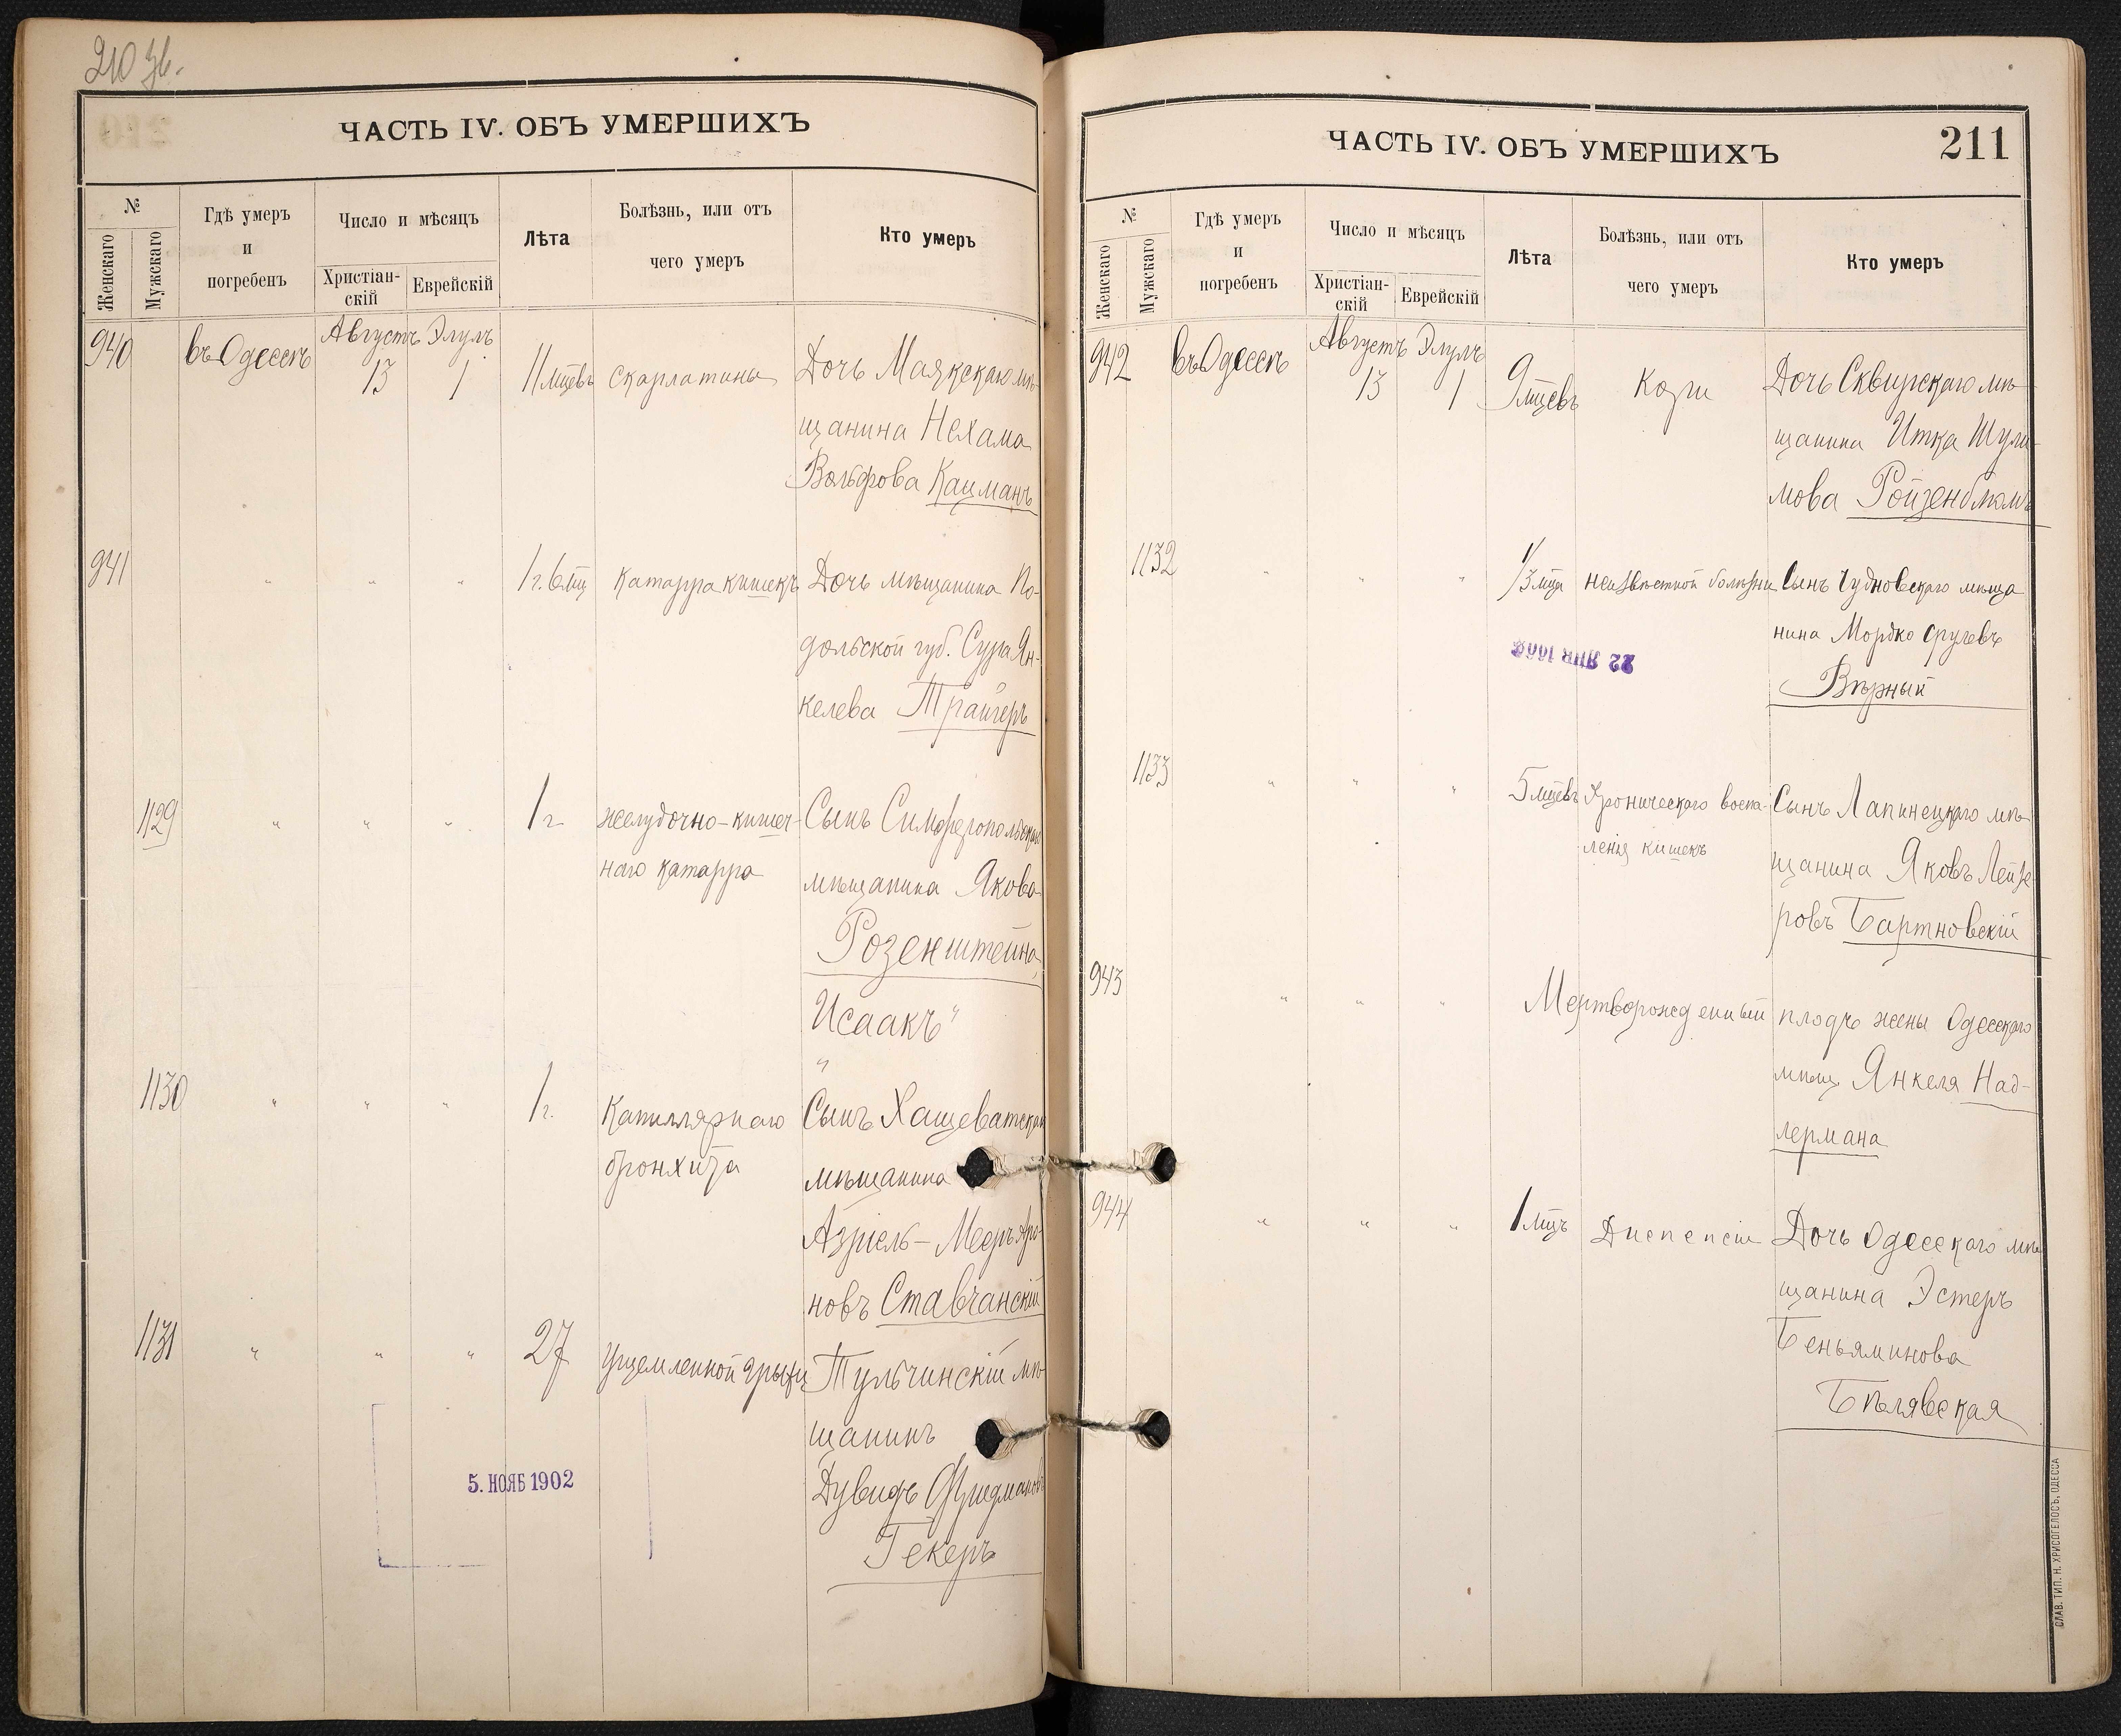 210 об.
ЧАСТЬ IV. ОБЪ УМЕРШИХЪ
№
Женскаго
Мужскаго
Гдѣ умеръ
и
погребенъ
Число и мѣсяцъ
Христіан-
скій
Еврейскій
Лѣта
Болѣзнь, или отъ
чего умеръ
Кто умеръ
940 въ Одессѣ Августъ 13 Элулъ 1 11 мцевъ скарлатины Дочь Маякскаго мѣ-
щанина Нехама
Вольфова Кацманъ
941 " " " 1 г. 6 мц Катарра кишекъ Дочь мѣщанина По-
дольской губ. Сура Ян-
келева Трайгеръ
1129 " " " 1 г. желудочно-кишеч- Сынъ Симферопольскаго
наго катарра мѣщанина Якова
Розенштейна
Исаакъ"
"
1130 " " " 1 г. Капиллярнаго Сынъ Хащеватскаго
бронхита мѣщанина
Азріель-Мееръ Аро-
новъ Ставчанскій
1131 " " " 27 Ущемленной грыжи Тульчинскій мѣ-
щанинъ
Дувидъ Фридмановъ
Гекеръ
5. НОЯБ 1902
ЧАСТЬ IV. ОБЪ УМЕРШИХЪ
211
№
Женскаго
Мужскаго
Гдѣ умеръ
и
погребенъ
Число и мѣсяцъ
Христіан-
скій
Еврейскій
Лѣта
Болѣзнь, или отъ
чего умеръ
Кто умеръ
942 въ Одессѣ Августъ 13 Элулъ 1 9 мцевъ Кори Дочь Сквирскаго мѣ-
щанина Итка Шули-
мова Ройзенблюмъ
1132 " " " 1/3 мца неизвѣстной болѣзни Сынъ Чудновскаго мѣща
нина Мордко Срулевъ
Вѣрный
22 ЯНВ
1133 " " " 5 мцевъ Хроническаго воспа- Сынъ Лапинецкаго мѣ-
ленія кишекъ щанина Яковъ Лейзе-
ровъ Бартновскій
943 " " " Мертворожденный плодъ жены Одесскаго
мѣщ Янкеля Над-
лермана
944 " " " 1 мцъ Диспепсіи Дочь Одесскаго мѣ
щанина Эстеръ
Беньяминова
Бѣлявская
СЛАВ. ТИП. Н. ХРИСОГЕЛОСЪ, ОДЕССА